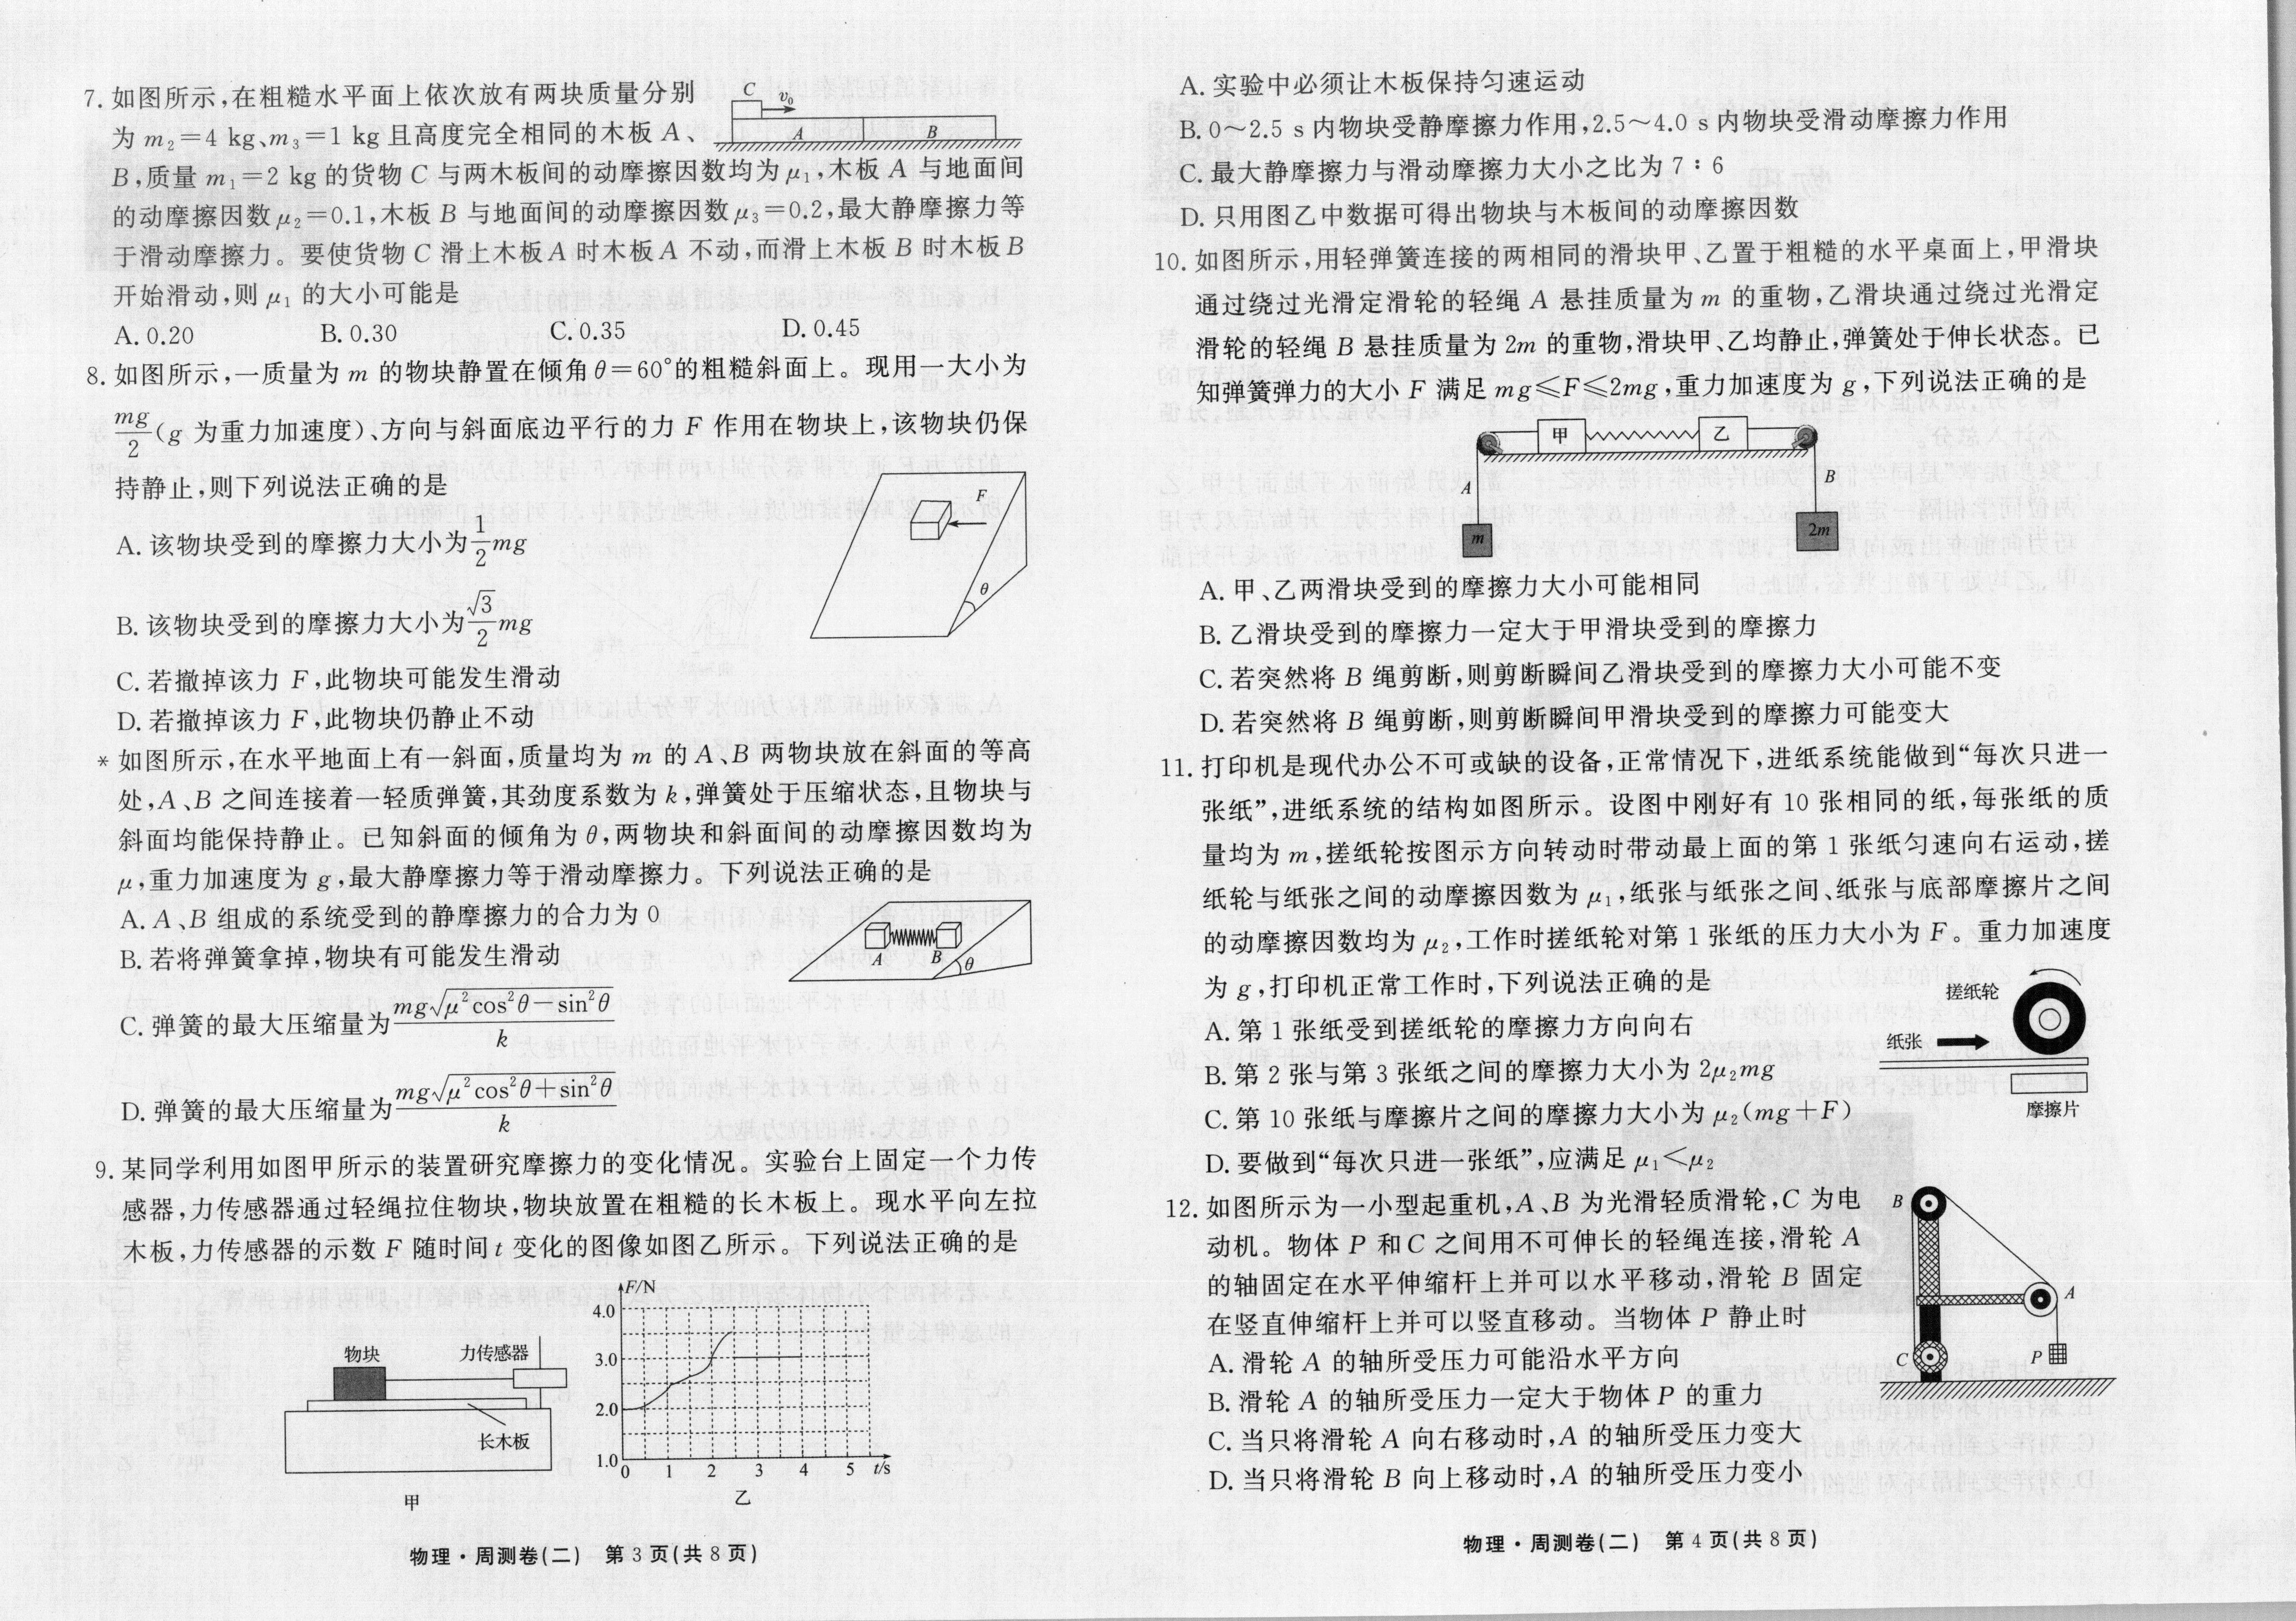 7. 如图所示,在粗糙水平面上依次放有两块质量分别
为 m₂=4 kg、m₃=1 kg 且高度完全相同的木板 A、
B,质量 m₁=2 kg 的货物 C 与两木板间的动摩擦因数均为 μ₁,木板 A 与地面间
的动摩擦因数 μ₂=0.1,木板 B 与地面间的动摩擦因数 μ₃=0.2,最大静摩擦力等
于滑动摩擦力。要使货物 C 滑上木板 A 时木板 A 不动,而滑上木板 B 时木板 B
开始滑动,则 μ₁ 的大小可能是
C
v₀
A
B
A. 0.20
B. 0.30
C. 0.35
D. 0.45
8. 如图所示,一质量为 m 的物块静置在倾角 θ=60°的粗糙斜面上。现用一大小为
mg/2(g 为重力加速度)、方向与斜面底边平行的力 F 作用在物块上,该物块仍保
持静止,则下列说法正确的是
A. 该物块受到的摩擦力大小为 1/2 mg
B. 该物块受到的摩擦力大小为 √3/2 mg
C. 若撤掉该力 F,此物块可能发生滑动
D. 若撤掉该力 F,此物块仍静止不动
F
θ
* 如图所示,在水平地面上有一斜面,质量均为 m 的 A、B 两物块放在斜面的等高
处,A、B 之间连接着一轻质弹簧,其劲度系数为 k,弹簧处于压缩状态,且物块与
斜面均能保持静止。已知斜面的倾角为 θ,两物块和斜面间的动摩擦因数均为
μ,重力加速度为 g,最大静摩擦力等于滑动摩擦力。下列说法正确的是
A. A、B 组成的系统受到的静摩擦力的合力为 0
B. 若将弹簧拿掉,物块有可能发生滑动
C. 弹簧的最大压缩量为 mg√(μ²cos²θ−sin²θ)/k
D. 弹簧的最大压缩量为 mg√(μ²cos²θ+sin²θ)/k
A
B
θ
9. 某同学利用如图甲所示的装置研究摩擦力的变化情况。实验台上固定一个力传
感器,力传感器通过轻绳拉住物块,物块放置在粗糙的长木板上。现水平向左拉
木板,力传感器的示数 F 随时间 t 变化的图像如图乙所示。下列说法正确的是
物块
力传感器
长木板
甲
F/N
4.0
3.0
2.0
1.0
0 1 2 3 4 5 t/s
乙
物理·周测卷(二) 第 3 页(共 8 页)
A. 实验中必须让木板保持匀速运动
B. 0～2.5 s 内物块受静摩擦力作用,2.5～4.0 s 内物块受滑动摩擦力作用
C. 最大静摩擦力与滑动摩擦力大小之比为 7∶6
D. 只用图乙中数据可得出物块与木板间的动摩擦因数
10. 如图所示,用轻弹簧连接的两相同的滑块甲、乙置于粗糙的水平桌面上,甲滑块
通过绕过光滑定滑轮的轻绳 A 悬挂质量为 m 的重物,乙滑块通过绕过光滑定
滑轮的轻绳 B 悬挂质量为 2m 的重物,滑块甲、乙均静止,弹簧处于伸长状态。已
知弹簧弹力的大小 F 满足 mg≤F≤2mg,重力加速度为 g,下列说法正确的是
甲
乙
A
B
m
2m
A. 甲、乙两滑块受到的摩擦力大小可能相同
B. 乙滑块受到的摩擦力一定大于甲滑块受到的摩擦力
C. 若突然将 B 绳剪断,则剪断瞬间乙滑块受到的摩擦力大小可能不变
D. 若突然将 B 绳剪断,则剪断瞬间甲滑块受到的摩擦力可能变大
11. 打印机是现代办公不可或缺的设备,正常情况下,进纸系统能做到“每次只进一
张纸”,进纸系统的结构如图所示。设图中刚好有 10 张相同的纸,每张纸的质
量均为 m,搓纸轮按图示方向转动时带动最上面的第 1 张纸匀速向右运动,搓
纸轮与纸张之间的动摩擦因数为 μ₁,纸张与纸张之间、纸张与底部摩擦片之间
的动摩擦因数均为 μ₂,工作时搓纸轮对第 1 张纸的压力大小为 F。重力加速度
为 g,打印机正常工作时,下列说法正确的是
A. 第 1 张纸受到搓纸轮的摩擦力方向向右
B. 第 2 张与第 3 张纸之间的摩擦力大小为 2μ₂mg
C. 第 10 张纸与摩擦片之间的摩擦力大小为 μ₂(mg+F)
D. 要做到“每次只进一张纸”,应满足 μ₁<μ₂
搓纸轮
纸张
摩擦片
12. 如图所示为一小型起重机,A、B 为光滑轻质滑轮,C 为电
动机。物体 P 和 C 之间用不可伸长的轻绳连接,滑轮 A
的轴固定在水平伸缩杆上并可以水平移动,滑轮 B 固定
在竖直伸缩杆上并可以竖直移动。当物体 P 静止时
A. 滑轮 A 的轴所受压力可能沿水平方向
B. 滑轮 A 的轴所受压力一定大于物体 P 的重力
C. 当只将滑轮 A 向右移动时,A 的轴所受压力变大
D. 当只将滑轮 B 向上移动时,A 的轴所受压力变小
B
A
C
P
物理·周测卷(二) 第 4 页(共 8 页)